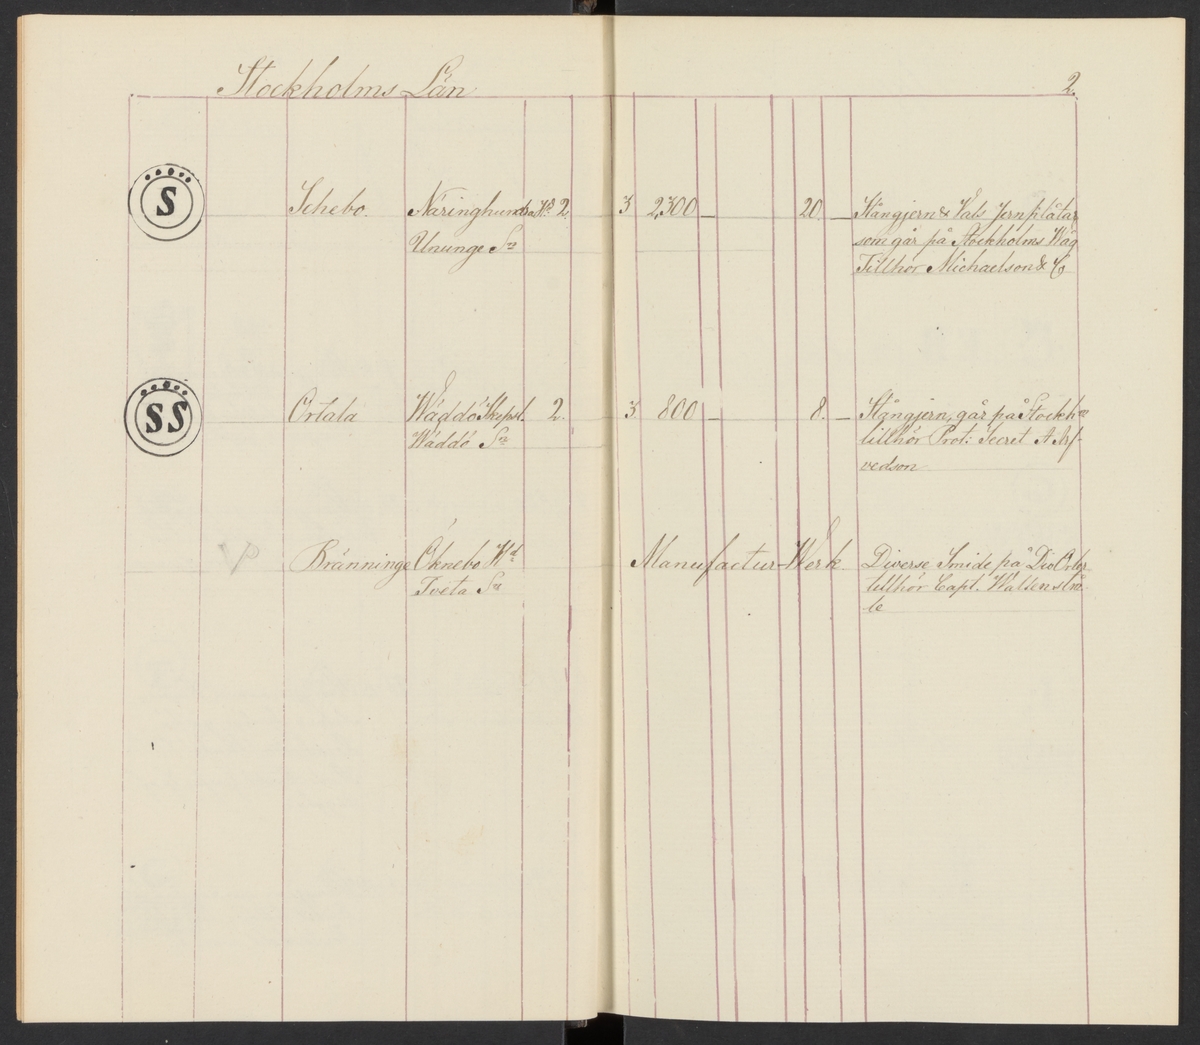 Stockholms Län
2.
S
Schebo.
Näringhundra Hd
2.
3
2,300
—
20.
—
Stångjern & Vals Jernplåtar
som går på Stockholms Wåg
Tillhör Michaelson & Co
Ununge Sn
SS
Ortala
Wäddö Skepsl.
2.
3
800
—
8.
—
Stångjern, går på Stockhm
tillhör Prot: Secret A Arf-
vedson
Wäddö Sn
Bränninge
Öknebo Hd
Manufactur-Werk.
Diverse Smide på Div Orter
tillhör Capt.
Tveta Sn